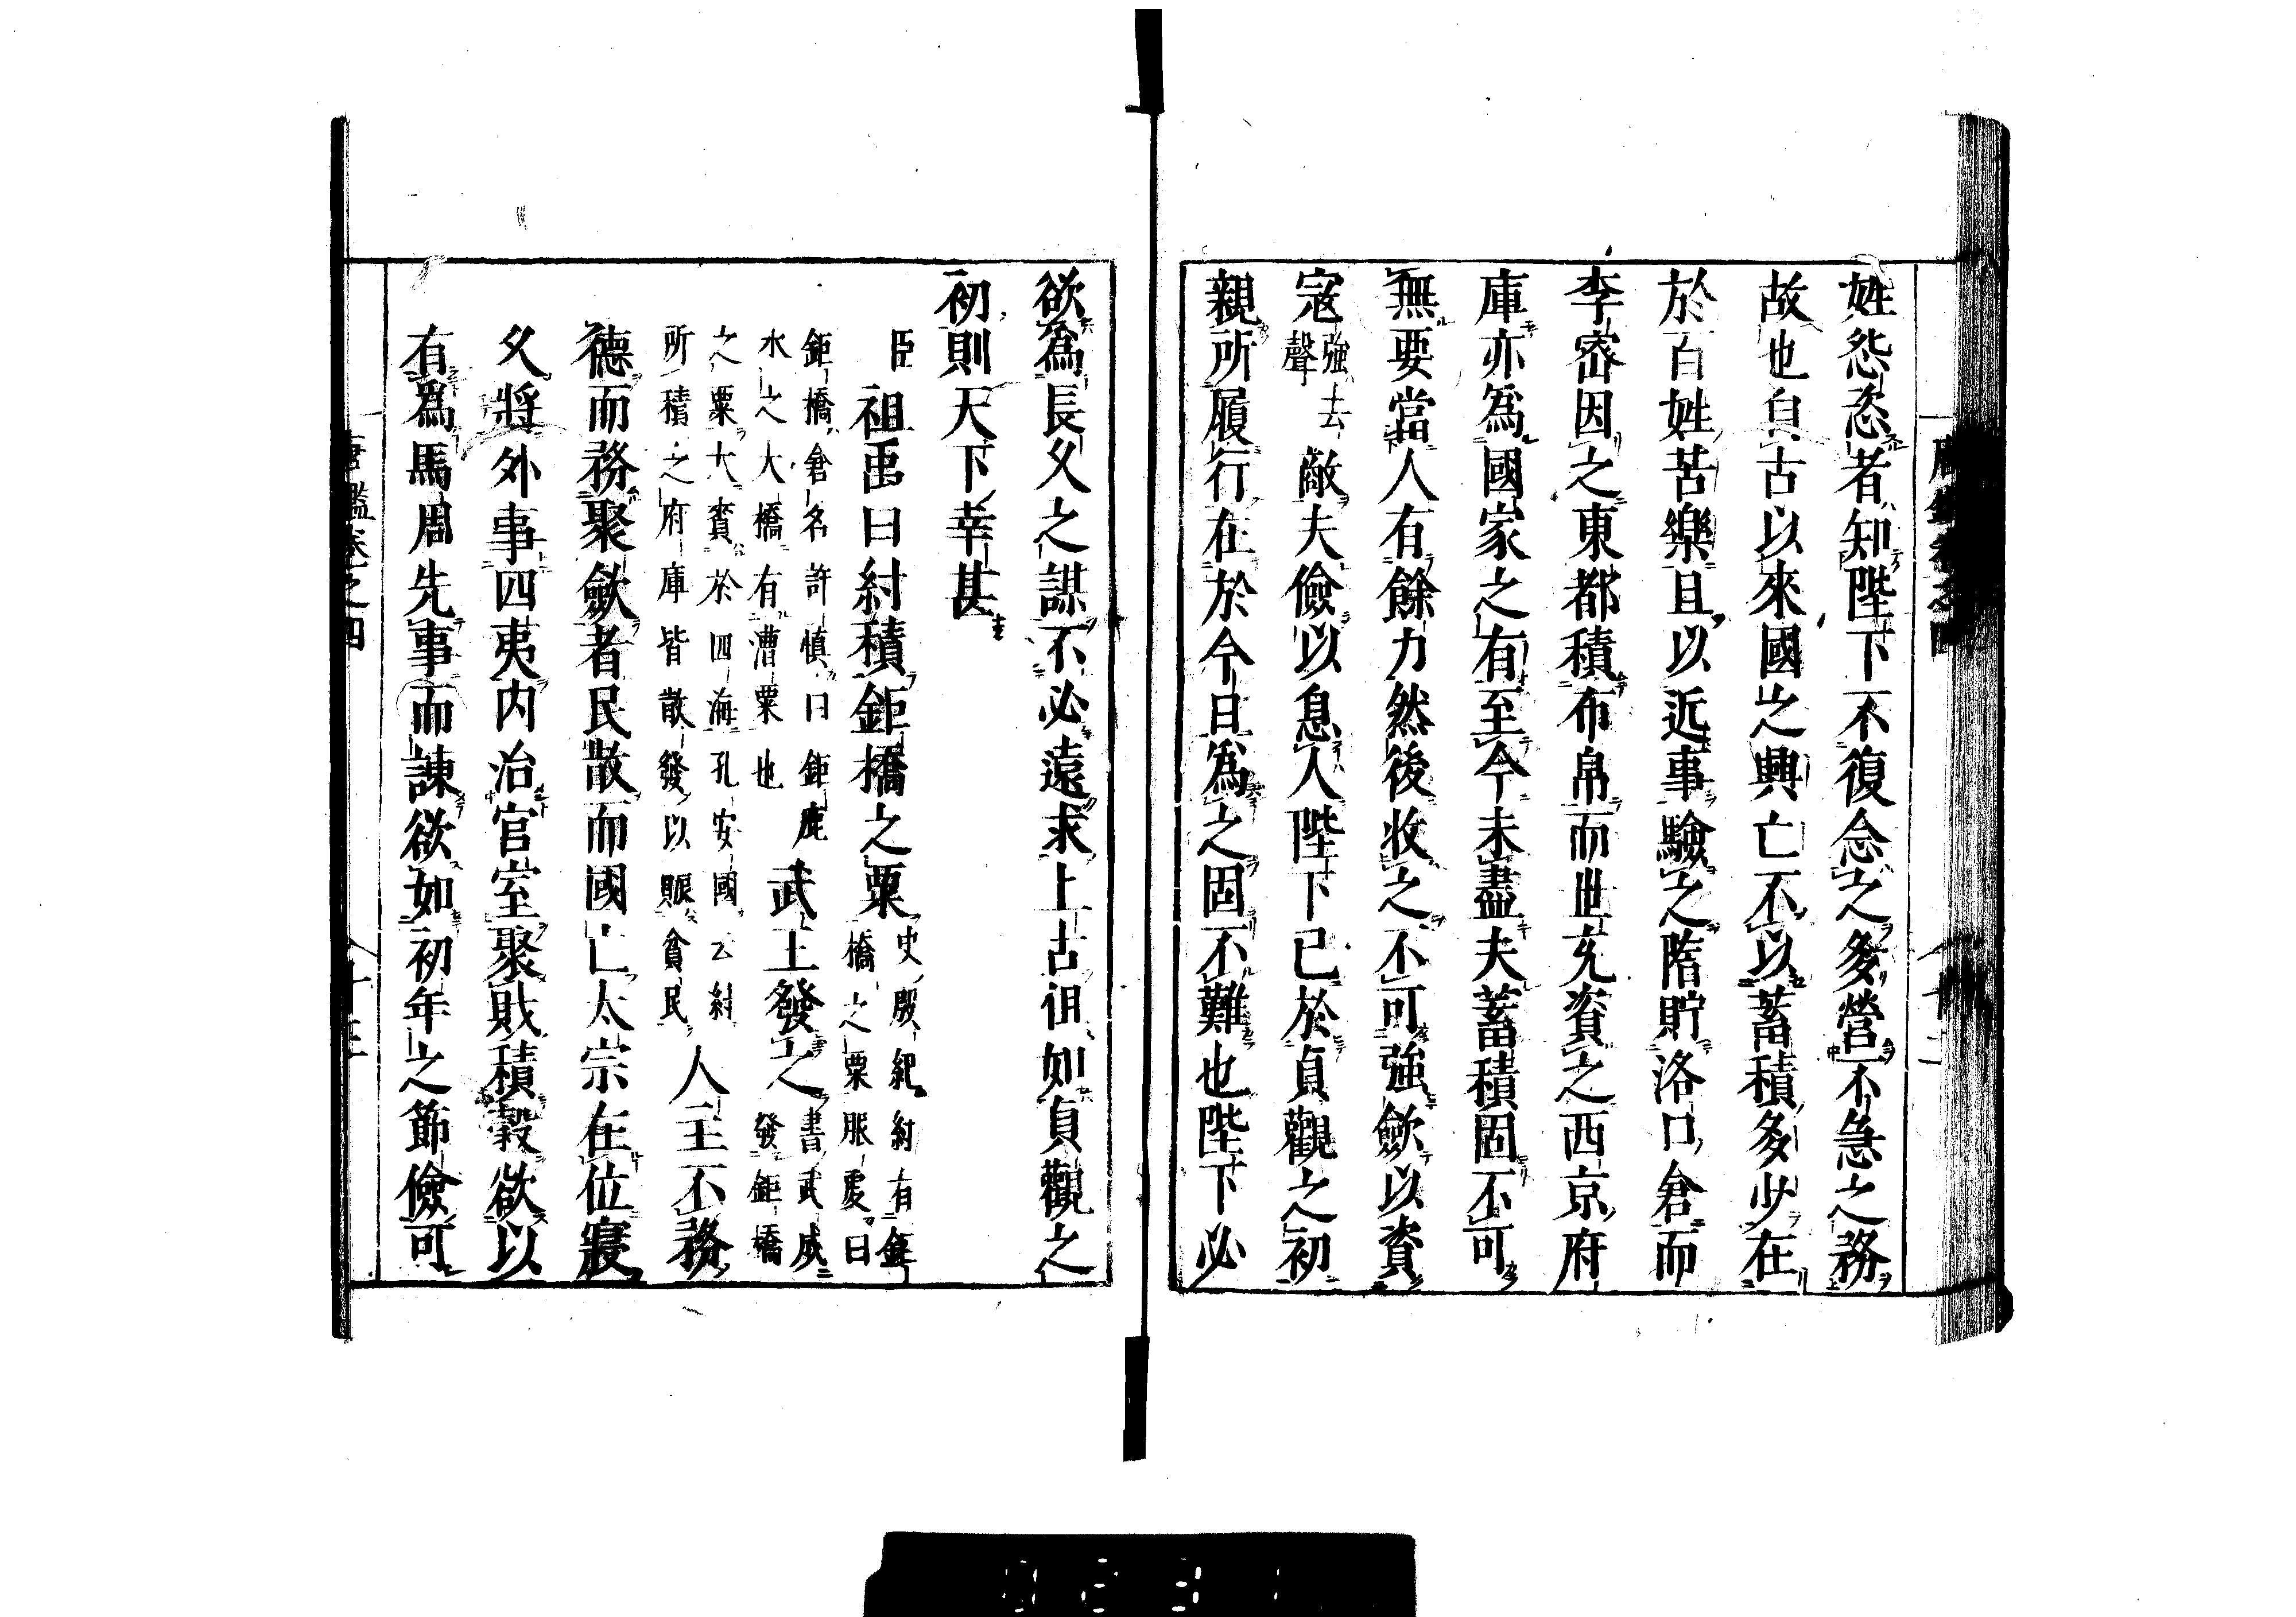 姓怨恣者知陛下不復念之多營不急之務
故也自古以來國之興亡不以蓄積多少在
於百姓苦樂且以近事驗之隋貯洛口倉而
李宻因之東都積布帛而世充資之西京府
庫亦爲國家之有至今未盡夫蓄積固不可
無要當人有餘力然後收之不可強歛以資
寇強去聲敵夫儉以息人陛下已於貞觀之初
親所履行在於今日爲之固不難也陛下必
欲爲長久之謀不必遠求上古但如貞觀之
初則天下幸甚
臣祖禹曰紂積鉅橋之粟史殷紀紂有鉅橋之粟服虔曰
鉅橋倉名許慎曰鉅鹿水之大橋有漕粟也武王發之書武成發鉅橋
之粟大賚於四海孔安國云紂所積之府庫皆散發以賑貧民人主不務
德而務聚歛者民散而國亡太宗在位寖
久將外事四夷内治宫室聚財積穀欲以
有爲馬周先事而諫欲如初年之節儉可
唐鑑卷之四